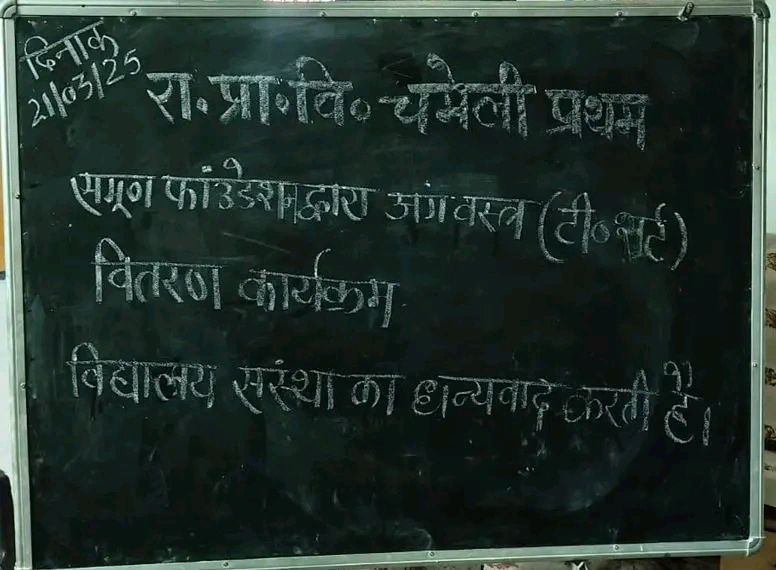 दिनाक
21/03/25
रा. प्रा. वि० चमेली प्रथम
समूण फांउडेशन द्वारा अंगवस्त्र (टी० शर्ट)
वितरण कार्यक्रम
विद्यालय संस्था का धन्यवाद करती है।